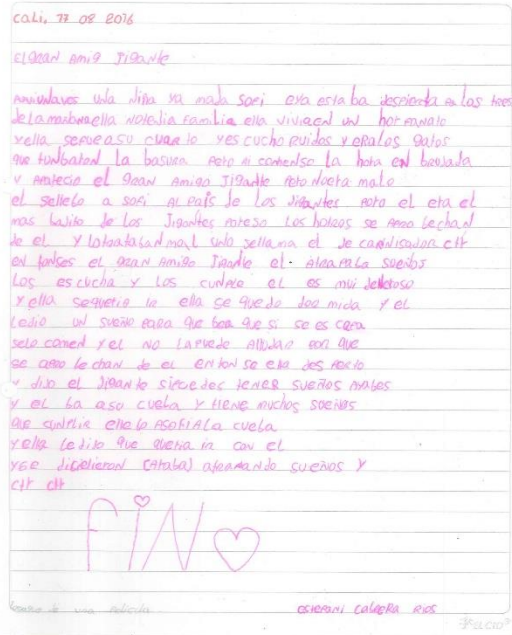 Cali, 17 08 2016
El gran Amig Jigante
Amiunaves una niña ya mada sofi eya estaba despienta A las tres
de la mañana ella no tenia familia ella vivia en un horfanato
y ella se fue a su cuarto y escucho ruidos y era los gatos
que tunbaron la basura pero hi comenso la hora en brujada
y aparecio el gran Amigo Jigante pero no era malo
el se llebo a sofi Al Pais de los Jigantes pero el era el
mas bajito de los Jigantes por eso los hotros se apro bechan
de el y lo trataban mal uno se llama el de carnisador ctt
en tonses el gran Amigo Jigante el Atrapala sueños
los escucha y los cunple el es mui
y ella se queria ir ella se quedo dor mida y el
le dio un sueño para que bea que si se es capa
se lo comen y el no la puede Alludar por que
se apro bechan de el en ton se ella des perto
y dijo el Jigante si puedes tener sueños
y el ba a su cueba y tiene muchos sueños
que cunplir el llebo A SOFI A LA cueba
y ella le dijo que queria ir con el
y se dicidieron (Ataba) atrapando sueños y
ctt ctt
FIN
una pelicula
Estefani Cabrera Rios